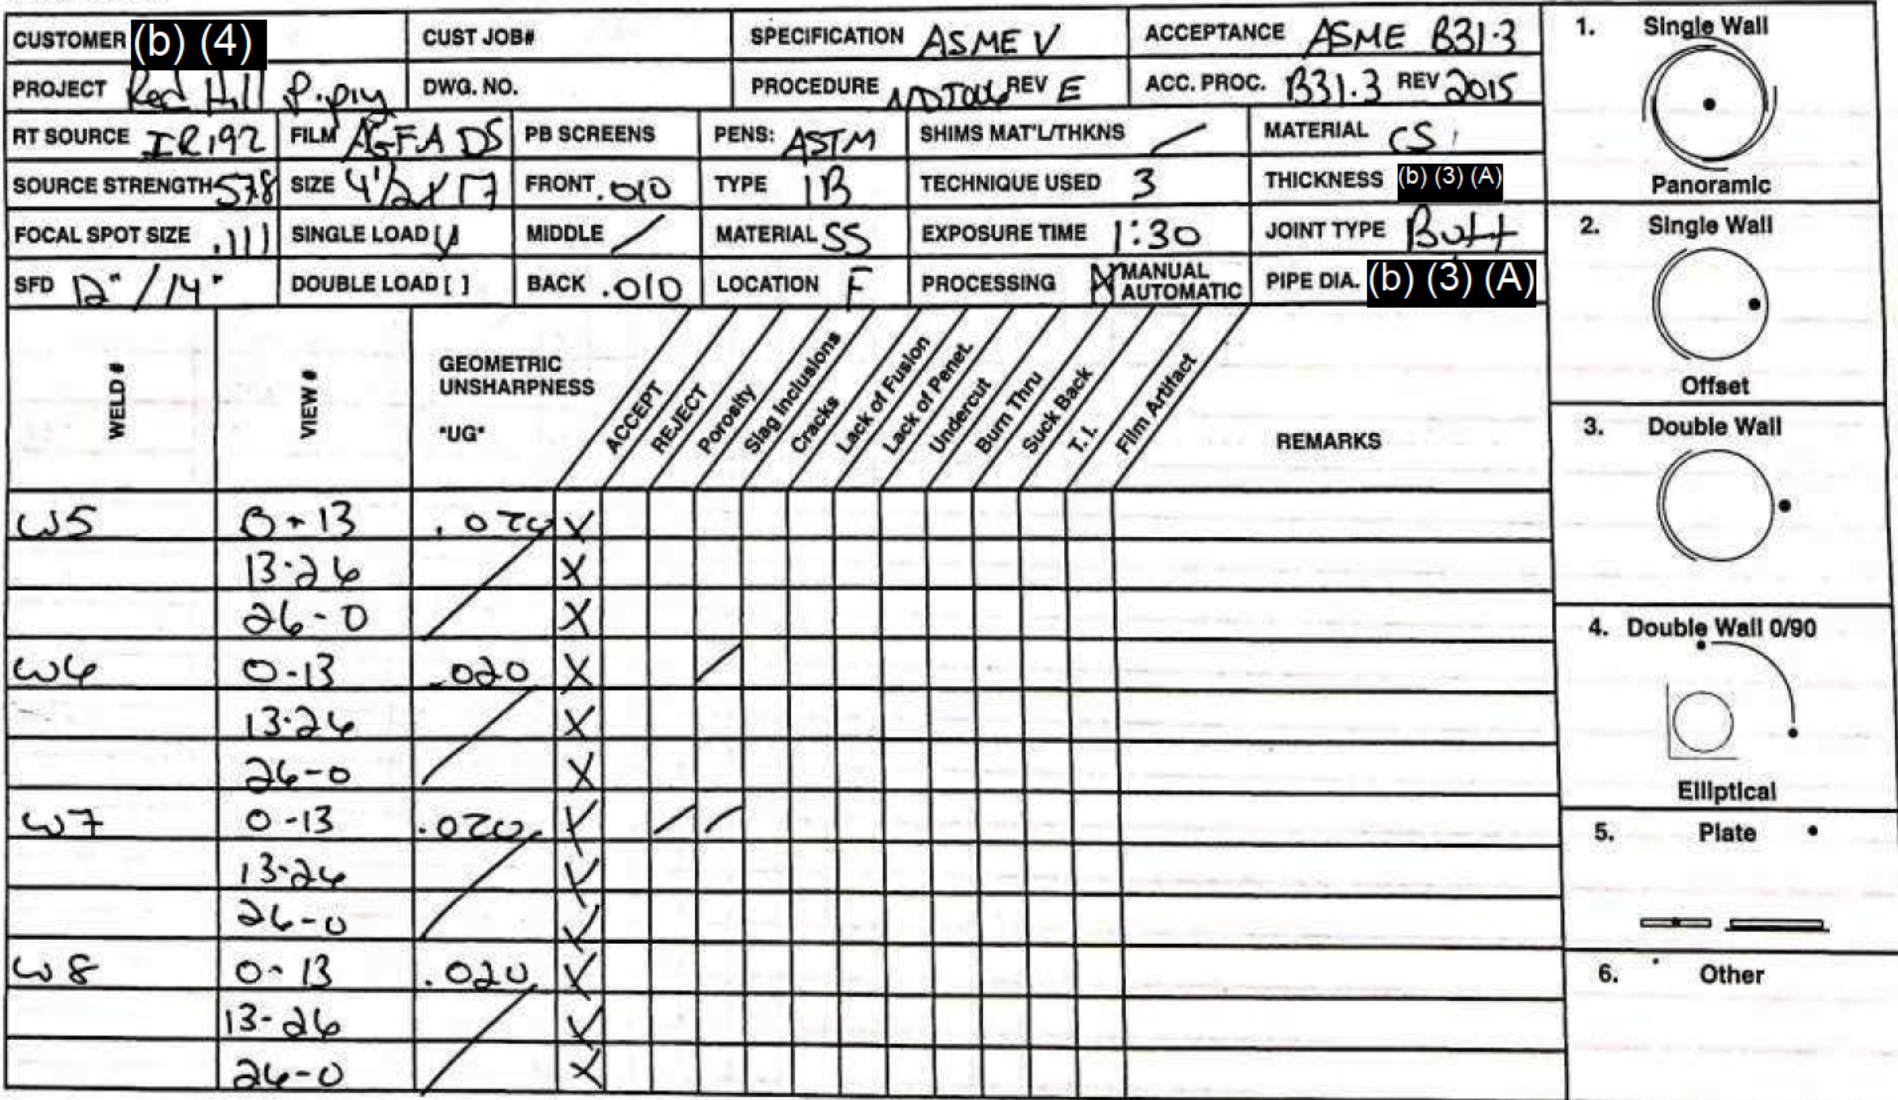 CUSTOMER (b) (4) CUST JOB# SPECIFICATION ASME V ACCEPTANCE ASME B31.3
PROJECT Red Hill Piping DWG. NO. PROCEDURE NDT006 REV E ACC. PROC. B31.3 REV 2015
RT SOURCE IR192 FILM AGFA D5 PB SCREENS PENS: ASTM SHIMS MAT'L/THKNS / MATERIAL CS
SOURCE STRENGTH 57.8 SIZE 4 1/2 x 17 FRONT .010 TYPE 1B TECHNIQUE USED 3 THICKNESS (b) (3) (A)
FOCAL SPOT SIZE .111 SINGLE LOAD [✓] MIDDLE / MATERIAL SS EXPOSURE TIME 1:30 JOINT TYPE Butt
SFD 12" / 14" DOUBLE LOAD [ ] BACK .010 LOCATION F PROCESSING X MANUAL AUTOMATIC PIPE DIA. (b) (3) (A)
WELD # VIEW # GEOMETRIC UNSHARPNESS "UG" ACCEPT REJECT Porosity Slag Inclusions Cracks Lack of Fusion Lack of Penet. Undercut Burn Thru Suck Back T. I. Film Artifact REMARKS
W5 0-13 .020 X
13-26 X
26-0 X
W6 0-13 .020 X /
13-26 X
26-0 X
W7 0-13 .020 X / /
13-26 X
26-0 X
W8 0-13 .020 X
13-26 X
26-0 X
1. Single Wall
Panoramic
2. Single Wall
Offset
3. Double Wall
4. Double Wall 0/90
Elliptical
5. Plate
6. Other